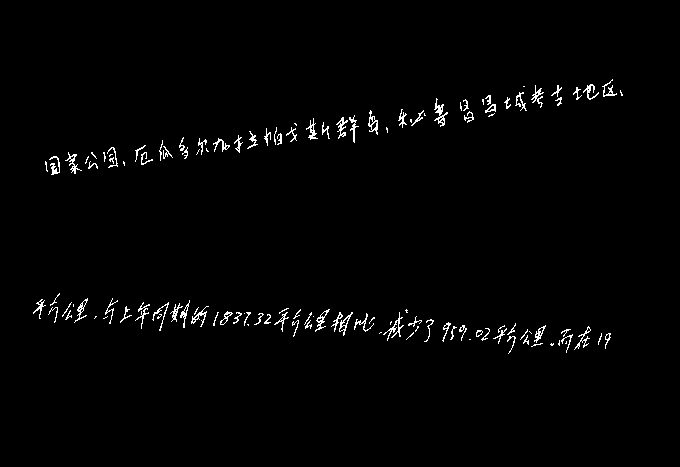 国家公园、厄瓜多尔加拉帕戈斯群岛、秘鲁昌昌城考古地区、
平方公里，与上年同期的1837.32平方公里相比，减少了959.02平方公里。而在19